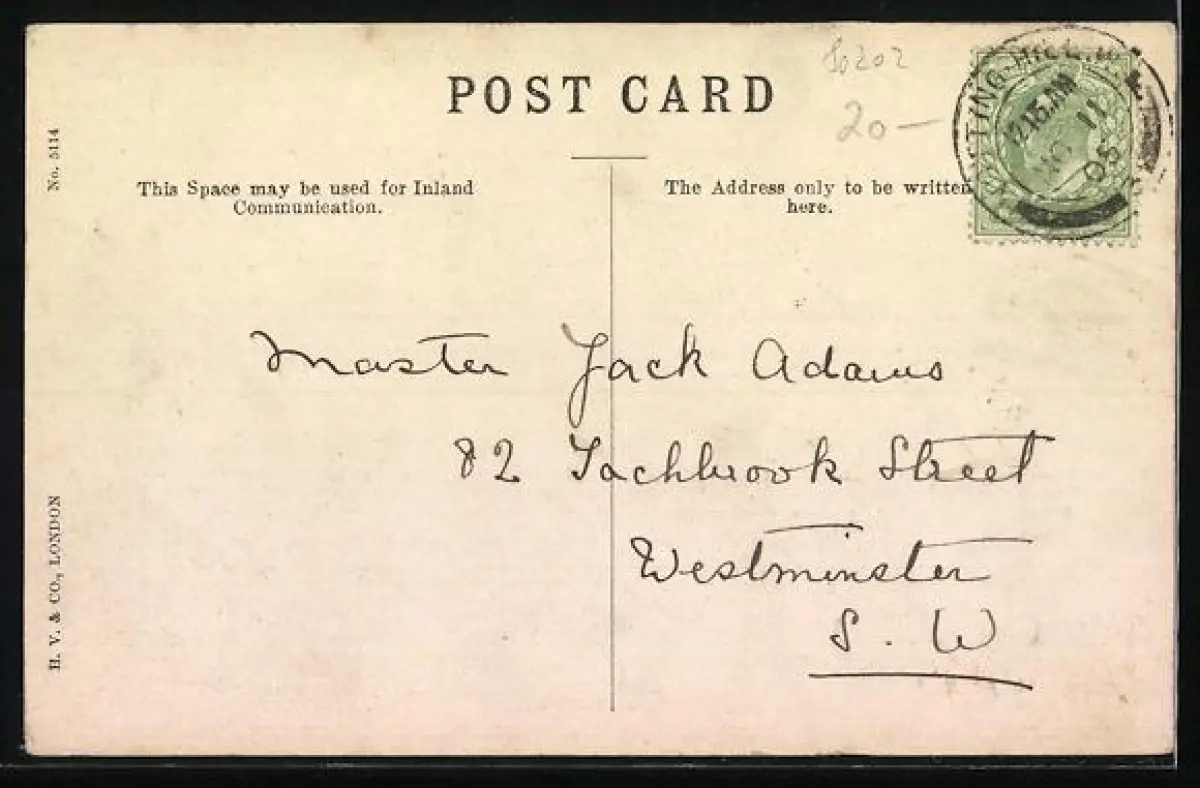 So202
20 —
POST CARD
No. 5114
This Space may be used for Inland
Communication.
The Address only to be written
here.
NOTTING HILL
12.15 AM
NO 11
05
Master Jack Adams
82 Tachbrook Street
Westminster
S. W
H. V. & CO., LONDON